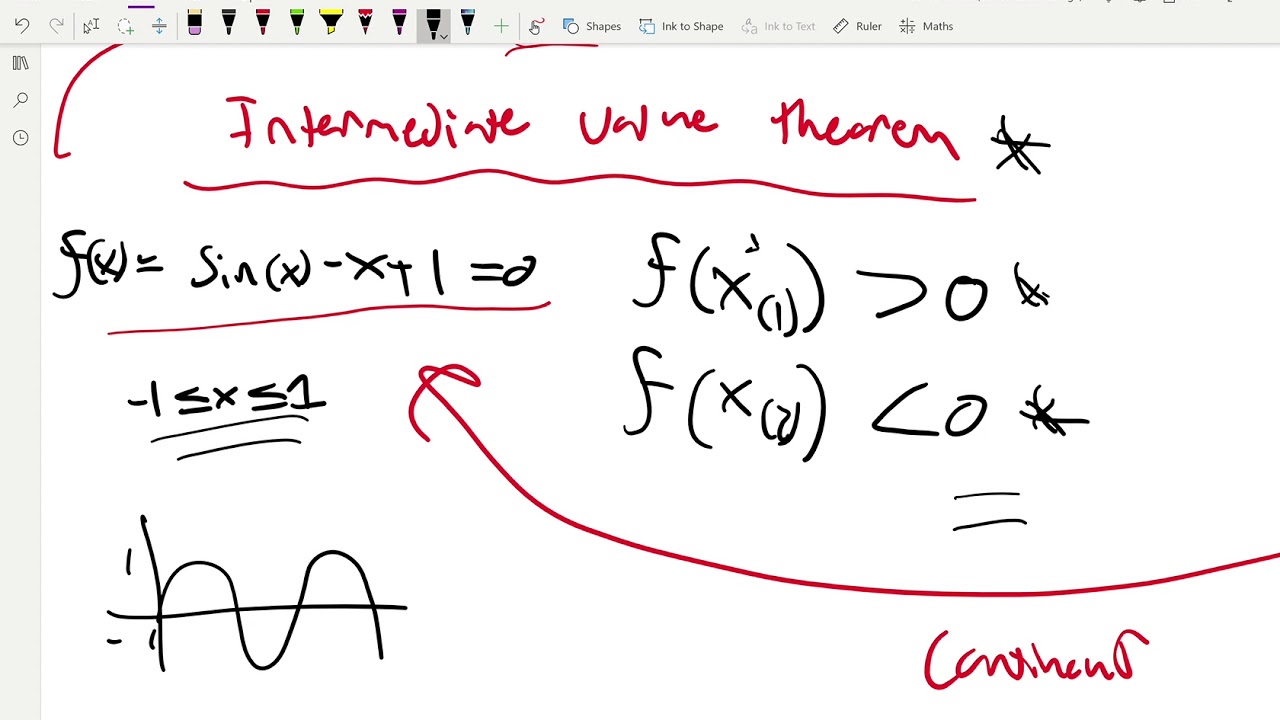 Shapes
Ink to Shape
Ink to Text
Ruler
Maths
Intermediate value theorem *
f(x) = sin(x) - x + 1 = 0
f(x(1)) > 0 *
-1 ≤ x ≤ 1
f(x(2)) < 0 *
1
- 1